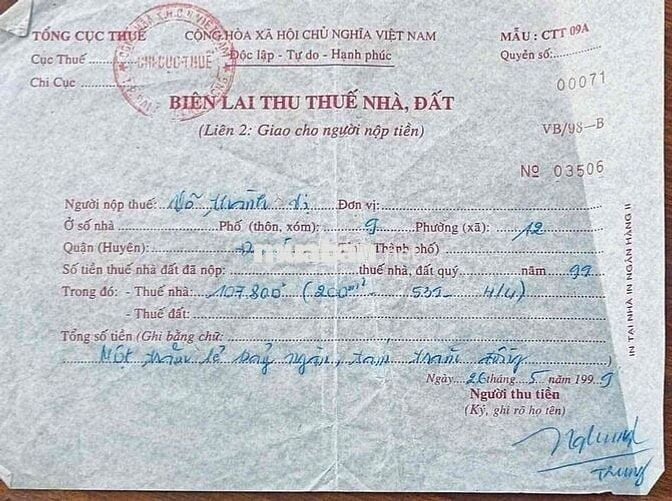 TỔNG CỤC THUẾ CỘNG HÒA XÃ HỘI CHỦ NGHĨA VIỆT NAM MẪU : CTT 09A
Cục Thuế Độc lập - Tự do - Hạnh phúc Quyển số:
Chi Cục CHI CỤC THUẾ 00071
BIÊN LAI THU THUẾ NHÀ, ĐẤT
(Liên 2: Giao cho người nộp tiền) VB/98-B
Nº 03506
Người nộp thuế: Võ Đơn vị:
Ở số nhà Phố (thôn, xóm): 9 Phường (xã): 12
Quận (Huyện): Thành phố)
Số tiền thuế nhà đất đã nộp: thuế nhà, đất quý năm 99
Trong đó: - Thuế nhà: 107.800đ (200m² 539 4/4)
- Thuế đất:
Tổng số tiền (Ghi bằng chữ:
Một trăm lẻ bảy ngàn, tám trăm đồng)
Ngày 26 tháng 5 năm 1999
Người thu tiền
(Ký, ghi rõ họ tên)
Trung
IN TẠI NHÀ IN NGÂN HÀNG II